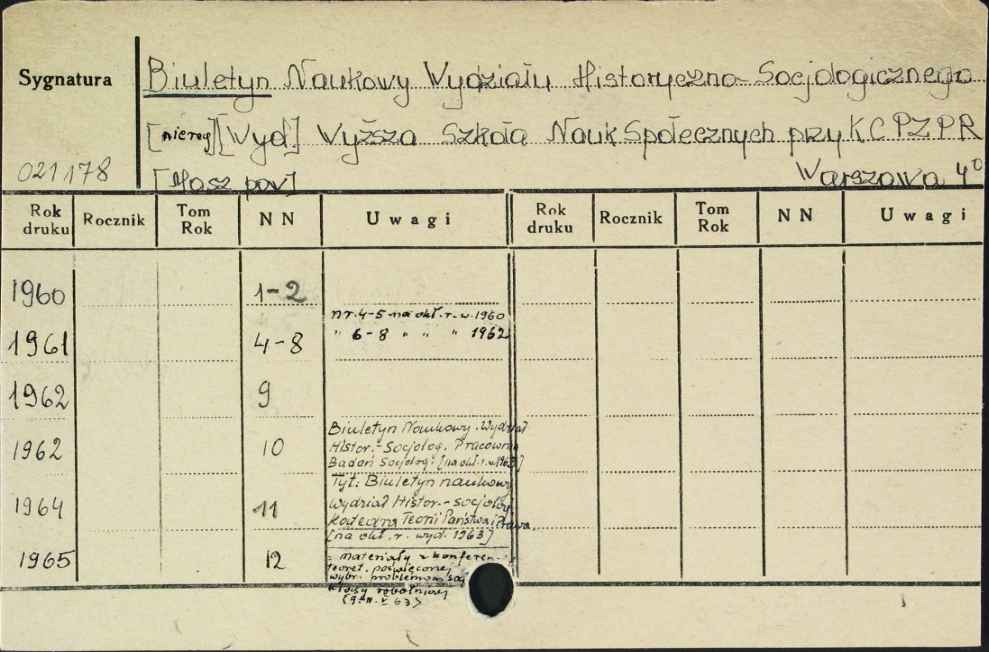 Sygnatura
Biuletyn Naukowy Wydziału Historyczno-Socjologicznego
[niereg] [Wyd] Wyższa Szkoła Nauk Społecznych przy KC PZPR
021178 [Masz pow] Warszawa 4°
Rok druku Rocznik Tom Rok NN Uwagi Rok druku Rocznik Tom Rok NN Uwagi
1960 1-2
nr. 4-5 na okł. r. w. 1960
1961 4-8 " 6-8 " " " 1962
1962 9
1962 10 Biuletyn Naukowy. Wydział
Histor.-Socjolog. Pracownia
Badań Socjolog. [na okł. r. w. 1963]
1964 11 Tyt: Biuletyn naukowy
Wydział Histor.-socjolog
Katedra Teorii Państwa i Prawa.
[na okł. r. wyd. 1963]
1965 12 materiały z konferen-
teoret. poświęconej
wybr. problemom soc
klasy robotniczej